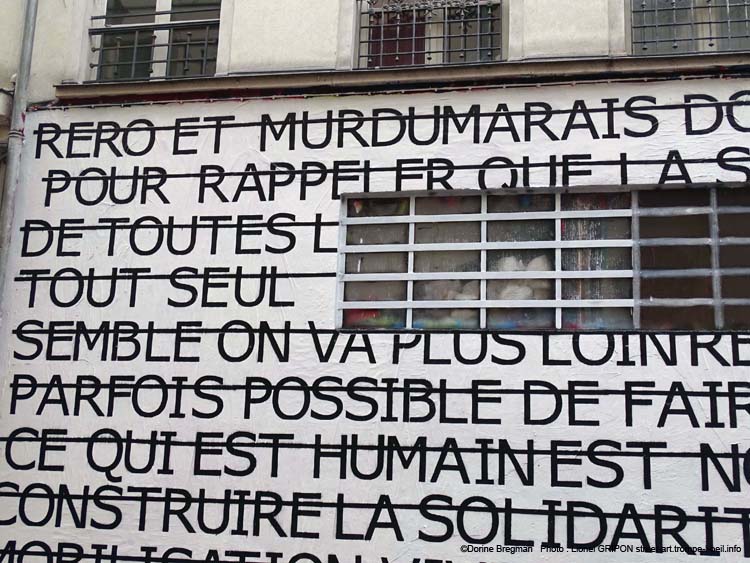 RERO ET MURDUMARAIS DO
POUR RAPPELER QUE LA S
DE TOUTES L
TOUT SEUL
SEMBLE ON VA PLUS LOIN RE
PARFOIS POSSIBLE DE FAIR
CE QUI EST HUMAIN EST NO
CONSTRUIRE LA SOLIDARIT
MOBILISATION
©Dorine Bregman Photo : Lionel GRIPON streetart.trompe-loeil.info